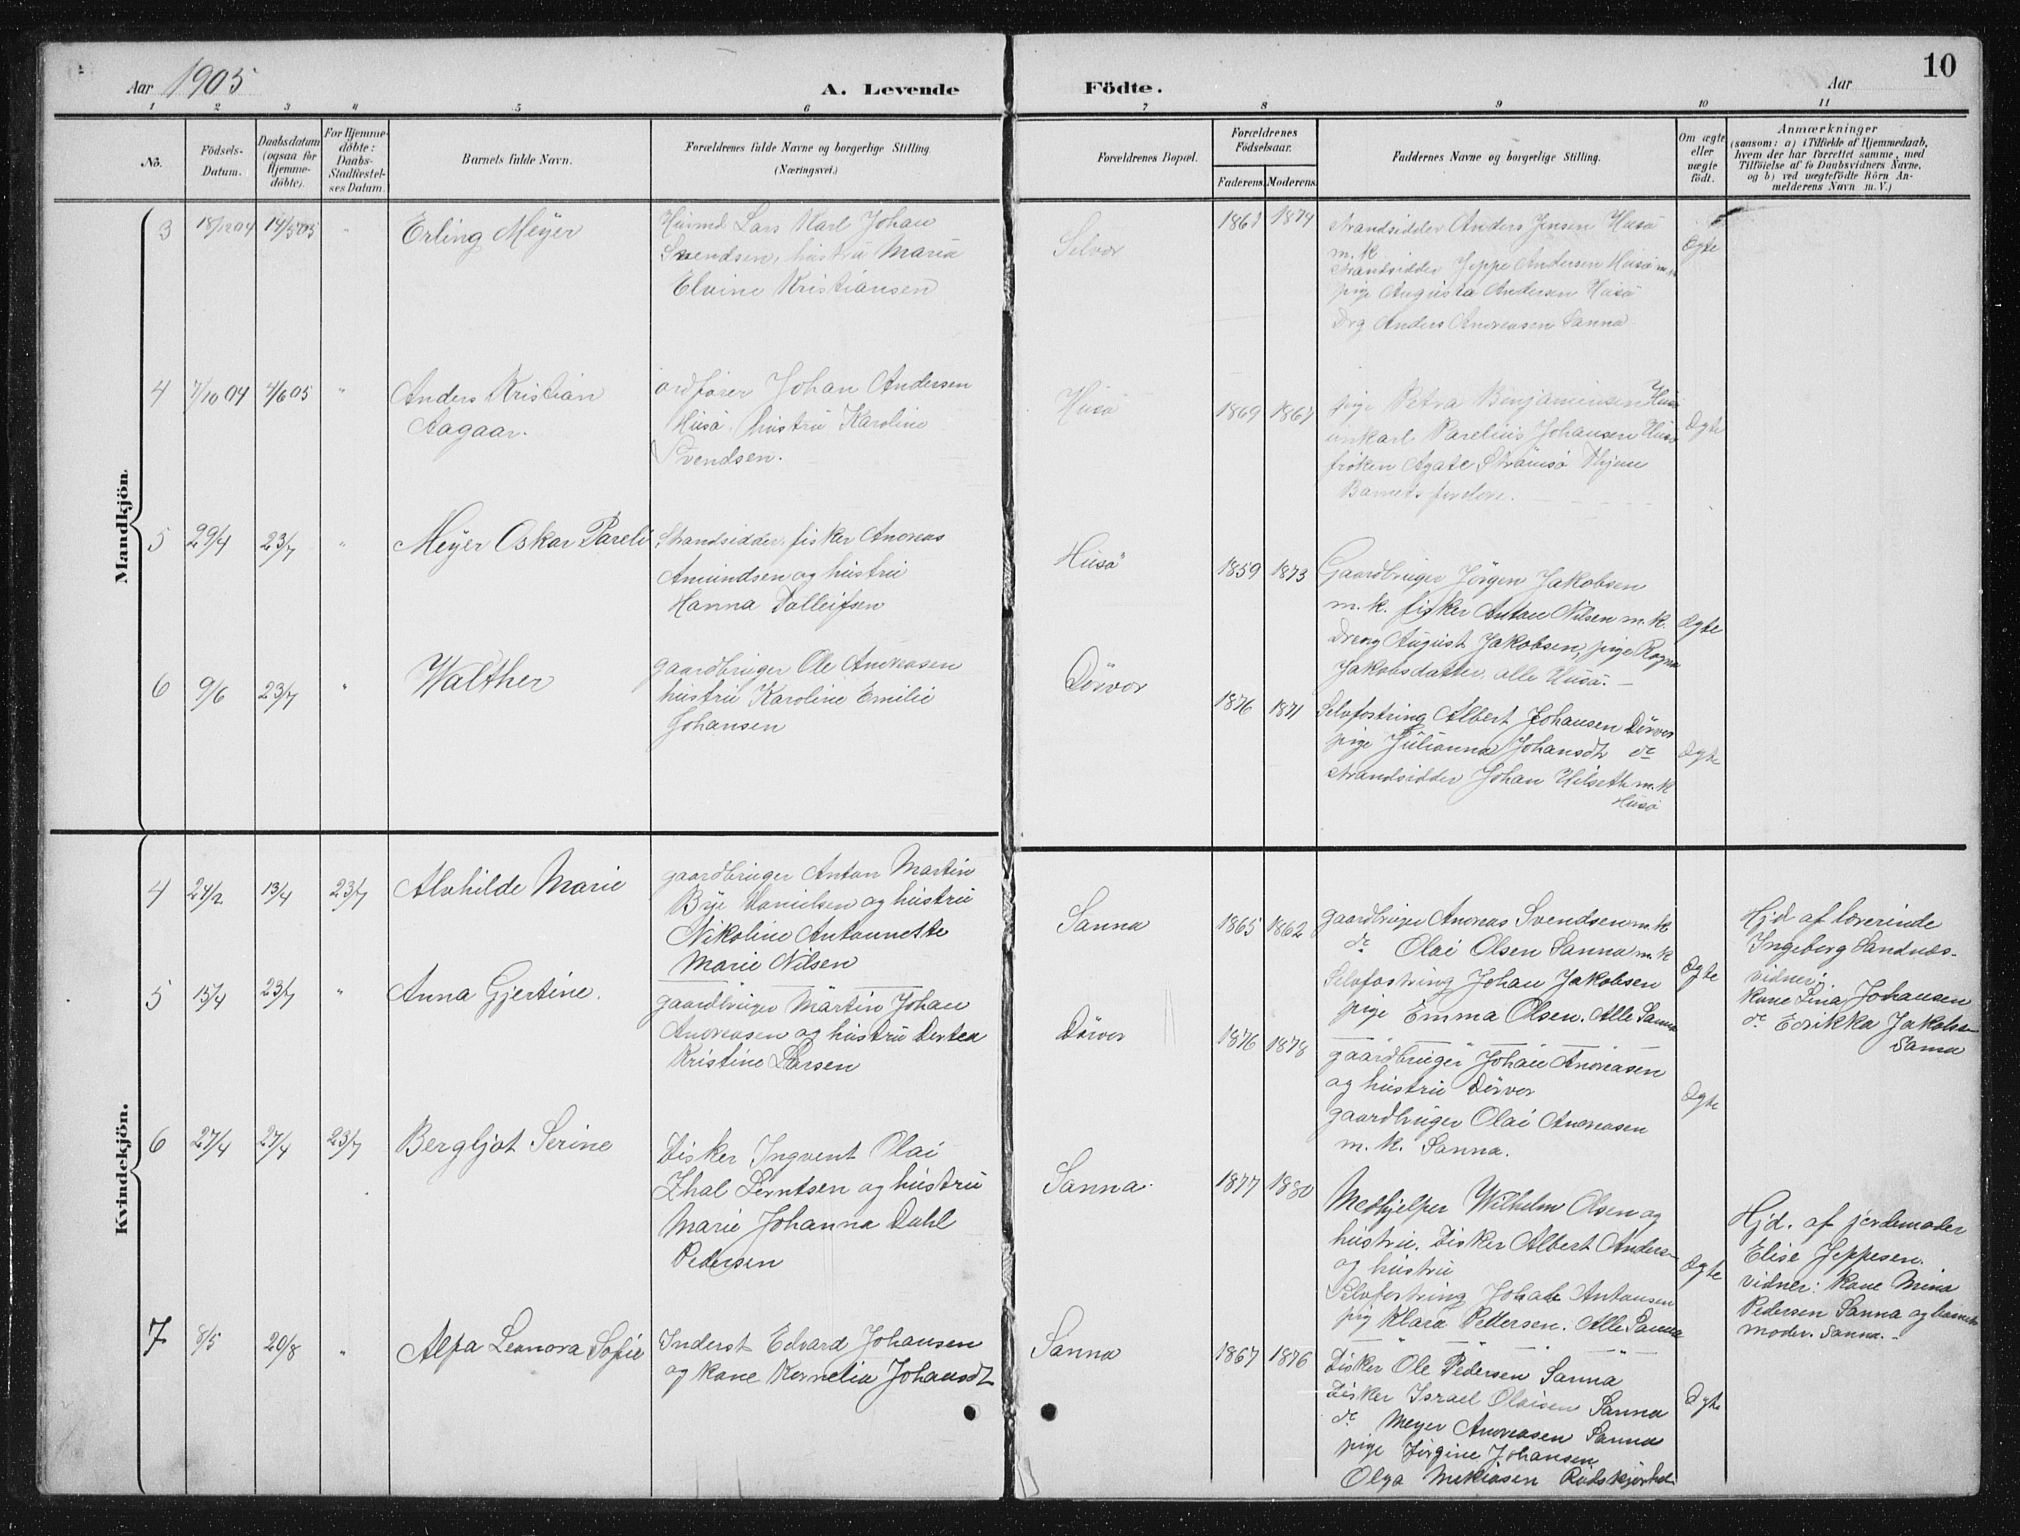 Aar 1905
A. Levende
Födte.
Aar
10
1 2 3 4 5 6 7 8 9 10 11
No.
Födsels-
Datum.
Daabsdatum
(ogsaa för
Hjemme-
döbte).
For Hjemme-
döbte:
Daabs-
Stadfæstel-
ses Datum.
Barnets fulde Navn.
Forældrenes fulde Navne og borgerlige Stilling
(Næringsvei.)
Forældrenes Bopæl.
Forældrenes
Födselsaar.
Faderens.
Moderens.
Faddernes Navne og borgerlige Stilling.
Om ægte
eller
uægte
födt.
Anmærkninger
(saasom: a) i Tilfælde af Hjemmedaab,
hvem der har forrettet samme, med
Tilföielse af to Daabsvidners Navne,
og b) ved uægtefödte Börn An-
melderens Navn m. V.)
Mandkjön.
3 18/12 04 14/5 05 "
Erling Meyer
Husmd Lars Karl Johan
Svendsen, hustru Maria
Elvine Kristiansen
Selvær
1861 1874
Strandsidder Anders Jensen Husö
m. k.
Strandsidder Jeppe Andersen Husö m.k
pige Augusta Andersen Husö
Drg Anders Andreasen Sanna
Ægte
4 7/10 04 4/6 05 "
Anders Kristian
Aagaar.
ordfører Johan Andersen
Husö, hustru Karoline
Svendsen.
Husö
1869 1867
pige Petra Benjaminsen Husö
unkarl Parelius Johansen Husö
frøken Agate Strömsö
Barnets foreldre.
Ægte
5 29/4 23/7 "
Meyer Oskar Pareli
Strandsidder, fisker Andreas
Amundsen og hustru
Hanna Tolleifsen
Husö
1859 1873
Gaardbruger Jörgen Jakobsen
m. k. fisker Antau Nilsen m. k.
Dreng August Jakobsen, pige Ragna
Jakobsdatter, alle Husö.
Ægte
6 9/6 23/7 "
Walther
gaardbruger Ole Andreasen
hustru Karoline Emilie
Johansen
Dörvær
1876 1871
Selvfostring Albert Johansen Dörvær
pige Julianna Johansdt do
strandsidder Johan Hilseth m. k
Husö
Ægte
Kvindekjön.
4 24/2 13/4 23/7
Alvhilde Marie
gaardbruger Anton Martin
Bye Danielsen og hustru
Nikoline Antonnette
Marie Nilsen
Sanna
1865 1862
gaardbruger Andreas Svendsen m. k
do Olai Olsen Sanna m. k
Selvfostring Johan Jakobsen
pige Emma Olsen. Alle Sanna
Ægte
Hjd af lærerinde
Ingeberg Sandnes-
vidner:
Kone Lina Johansen
do Edrikka Jakobs-
Sanna
5 15/4 23/7 "
Anna Gjertine.
gaardbruger Martin Johan
Andreasen og hustru Dortea
Kristine Larsen
Dörvær
1876 1878
gaardbruger Johan Andreasen
og hustru Dörvær
gaardbruger Olai Andreasen
m. k. Sanna.
Ægte
6 27/4 27/4 23/7
Bergljot Serine
Fisker Ingvent Olai
Zhal Berntsen og hustru
Marie Johanna Dahl
Pedersen
Sanna.
1877 1880
Medhjelper Wilhelm Olsen og
hustru. Fisker Albert Anders-
og hustru
Selvfostring Johan Antonsen
pig Klara Pettersen. Alle Sanna
Ægte
Hjd. af jordemoder
Elise Jeppesen.
vidner: Kone Mina
Pedersen Sanna og barnets
moder. Sanna.-
7 8/5 20/8 "
Alfa Leonora Sofie
Inderst Edvard Johansen
og kone Kornelia Johansdt
Sanna
1867 1876
Fisker Ole Pedersen Sanna
Fisker Israel Olaisen Sanna
do Meyer Andreasen Sanna
pige Jörgine Johansen
Olga Mikiasen
Ægte